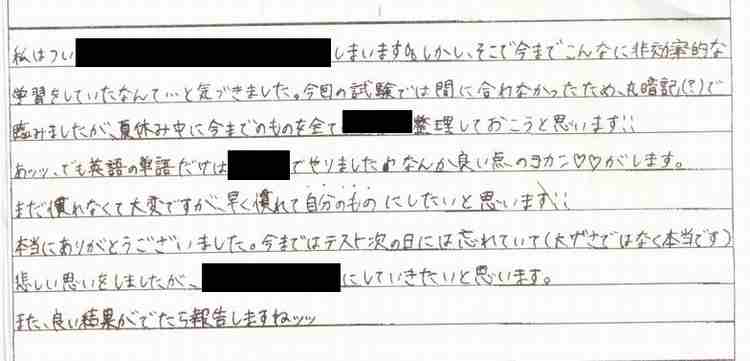 私はつい しまいます。しかし、そこで今までこんなに非効率的な
学習をしていたなんて…と気づきました。今回の試験では間に合わなかったため、丸暗記(?)で
臨みましたが、夏休み中に今までのものを全て 整理しておこうと思います!!
あッッ、でも英語の単語だけは でやりました♪なんか良い点のヨカン♡♡がします。
まだ慣れなくて大変ですが、早く慣れて自分のものにしたいと思います!!
本当にありがとうございました。今まではテスト次の日には忘れていて(大ゲサではなく本当です)
悲しい思いをしましたが、 にしていきたいと思います。
また、良い結果がでたら報告しますねッッ